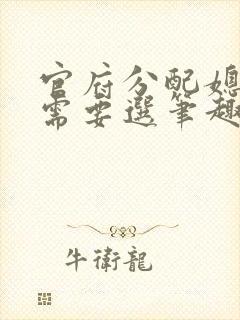 官府分配媳
需要選筆趣
牛衛龍